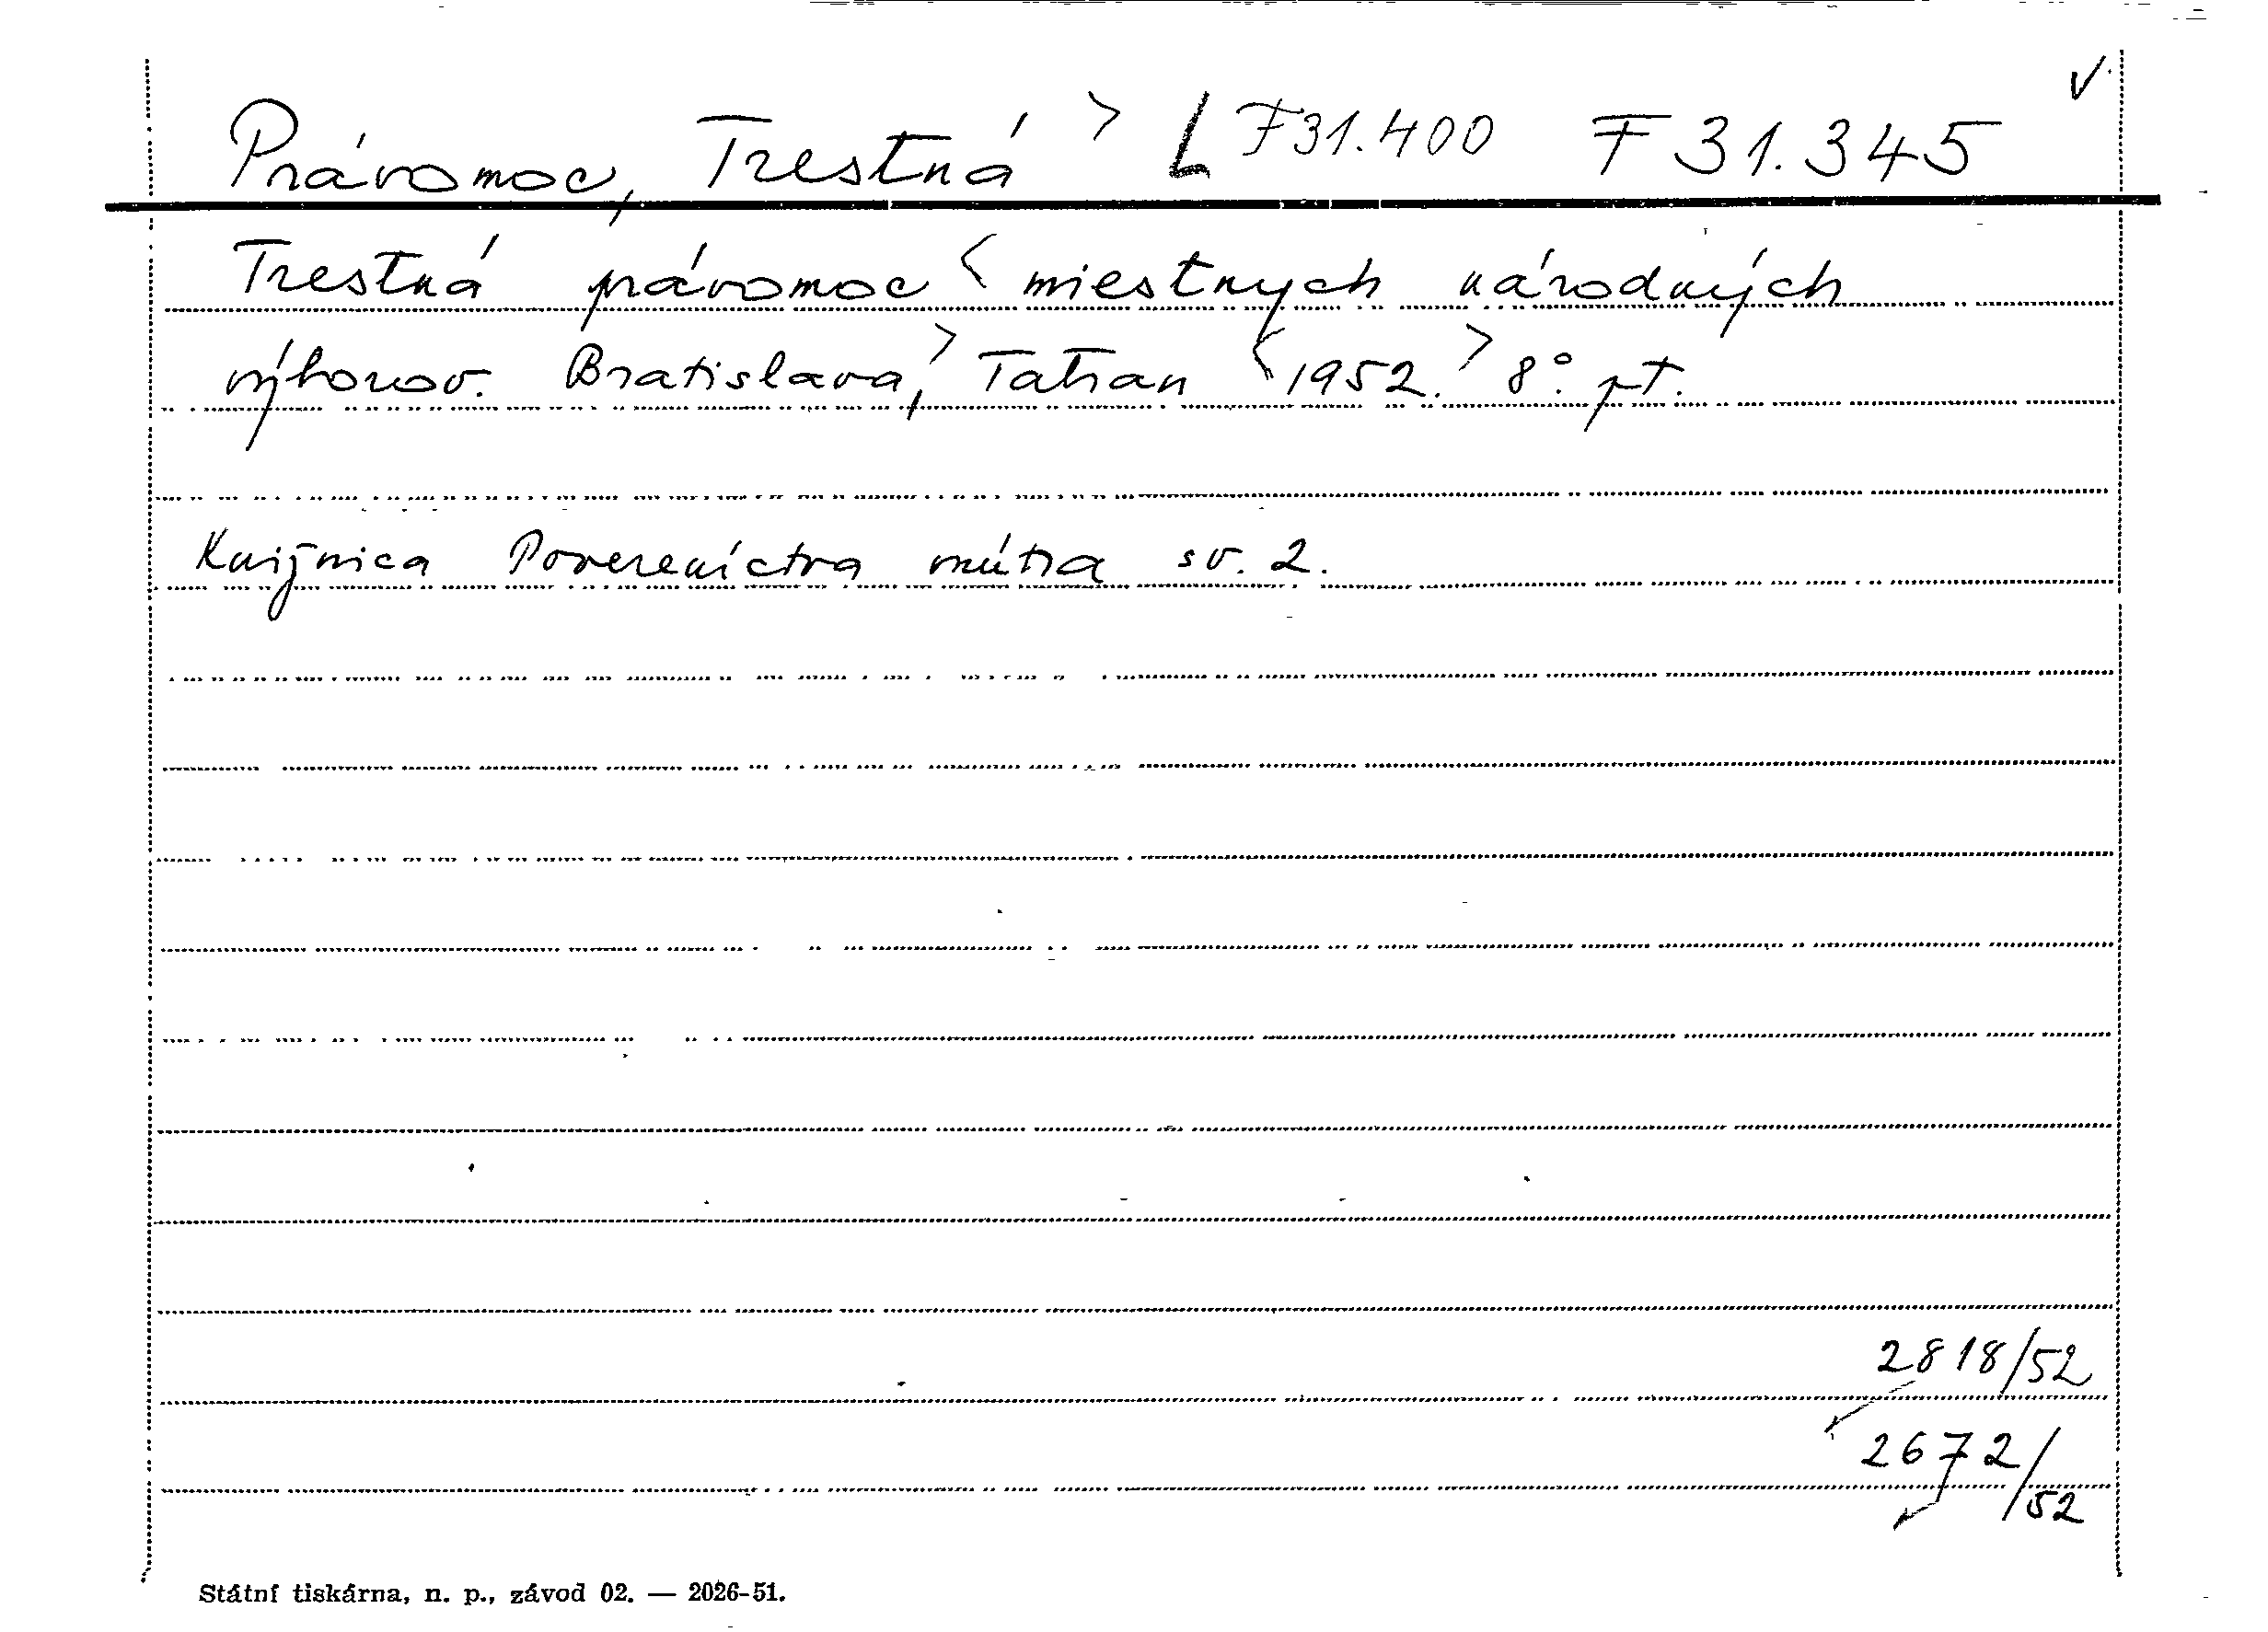 Právomoc, Trestná > L F31.400 F 31.345
Trestná právomoc < miestnych národných
výborov. Bratislava, > Tatran < 1952. > 8°. pt.
Knižnica Povereníctva vnútra sv. 2.
2818/52
2672/52
Státní tiskárna, n. p., závod 02. — 2026-51.